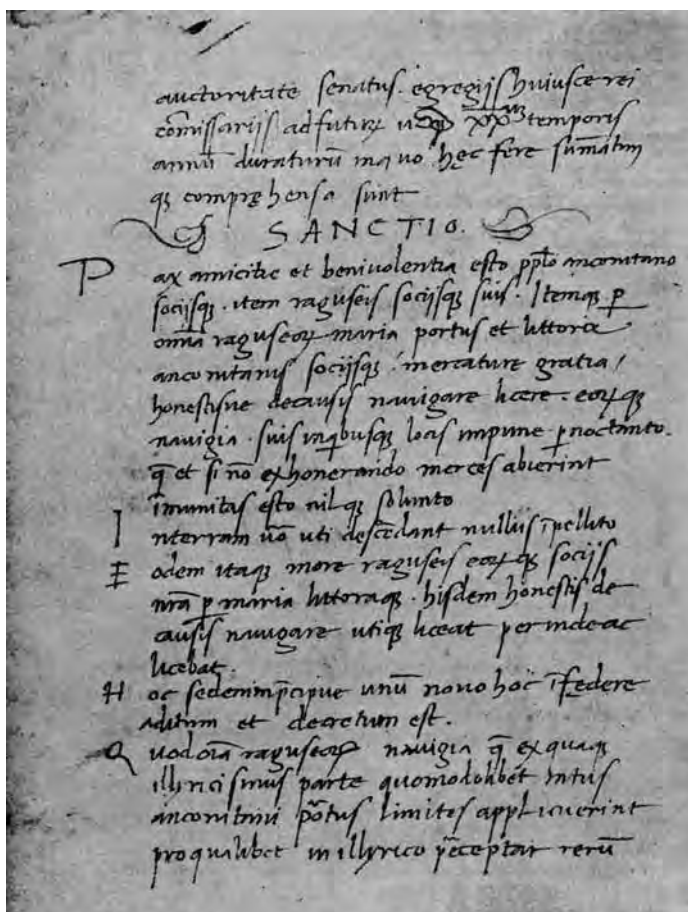 auctoritate senatus. egregijs huiusce rei
cōmissarijs ad futurꝝ usqꝫ XXᵘᵐ temporis
annū duraturū in quo hęc fere sum̄atim
qꝫ compręhensa sunt
SANCTIO.
Pax amicitie et beniuolentia esto ꝓplo anconitano
socijsqꝫ. item raguseis socijsqꝫ suis. Itemqꝫ ꝑ
omīa raguseoꝝ maria portus et littora
anconitanis socijsqꝫ / mercature gratia /
honestisue decausis nauigare licere. eoꝝqꝫ
nauigia. suis in locis impune ꝑnoctanto.
q̄ et si nō exhonerando merces abierint
īmunitas esto nilqꝫ soluunto
Interram uō uti descēdant nullus īpellito
Eodem itaqꝫ more raguseis eoꝝqꝫ socijs
nr̄a ꝑ maria littoraqꝫ. hisdem honestis de
causis nauigare utiqꝫ liceat perinde ac
licebat.
Hoc sedenim p̄cipue unū nouo hoc ī federe
aditum et decretum est.
Quod oīa raguseoꝝ nauigia q̄ ex quaqꝫ
illyrici sinus parte quomodolibet intus
anconitani portus limites applicuerint
pro qualibet in illyrico p̄ceptar rerū